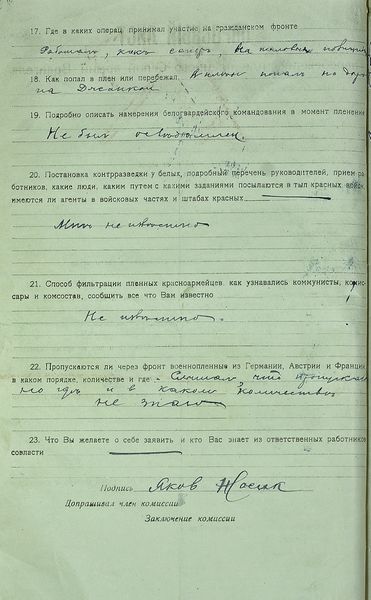 17. Где в каких операц. принимал участие на гражданском фронте
Работал, как сапер, на тыловых позициях
18. Как попал в плен или перебежал. В плен попал по дороге
на Дженкой
19. Подробно описать намерения белогвардейского командования в момент пленения
Не был осведомлен.
20. Постановка контрразведки у белых, подробный перечень руководителей, прием ра-
ботников, какие люди, каким путем с какими заданиями посылаются в тыл красных войск
имеются ли агенты в войсковых частях и штабах красных
Мне не известно
21. Способ фильтрации пленных красноармейцев, как узнавались коммунисты, комис-
сары и комсостав, сообщить все что Вам известно
Не известно.
22. Пропускаются ли через фронт военнопленные из Германии, Австрии и Франции
в каком порядке, количестве и где - Слышал что пропускали
но где и в каком количестве,
не знаю
23. Что Вы желаете о себе заявить и кто Вас знает из ответственных работников
совласти
Подпись Яков
Допрашивал член комиссии
Заключение комиссии